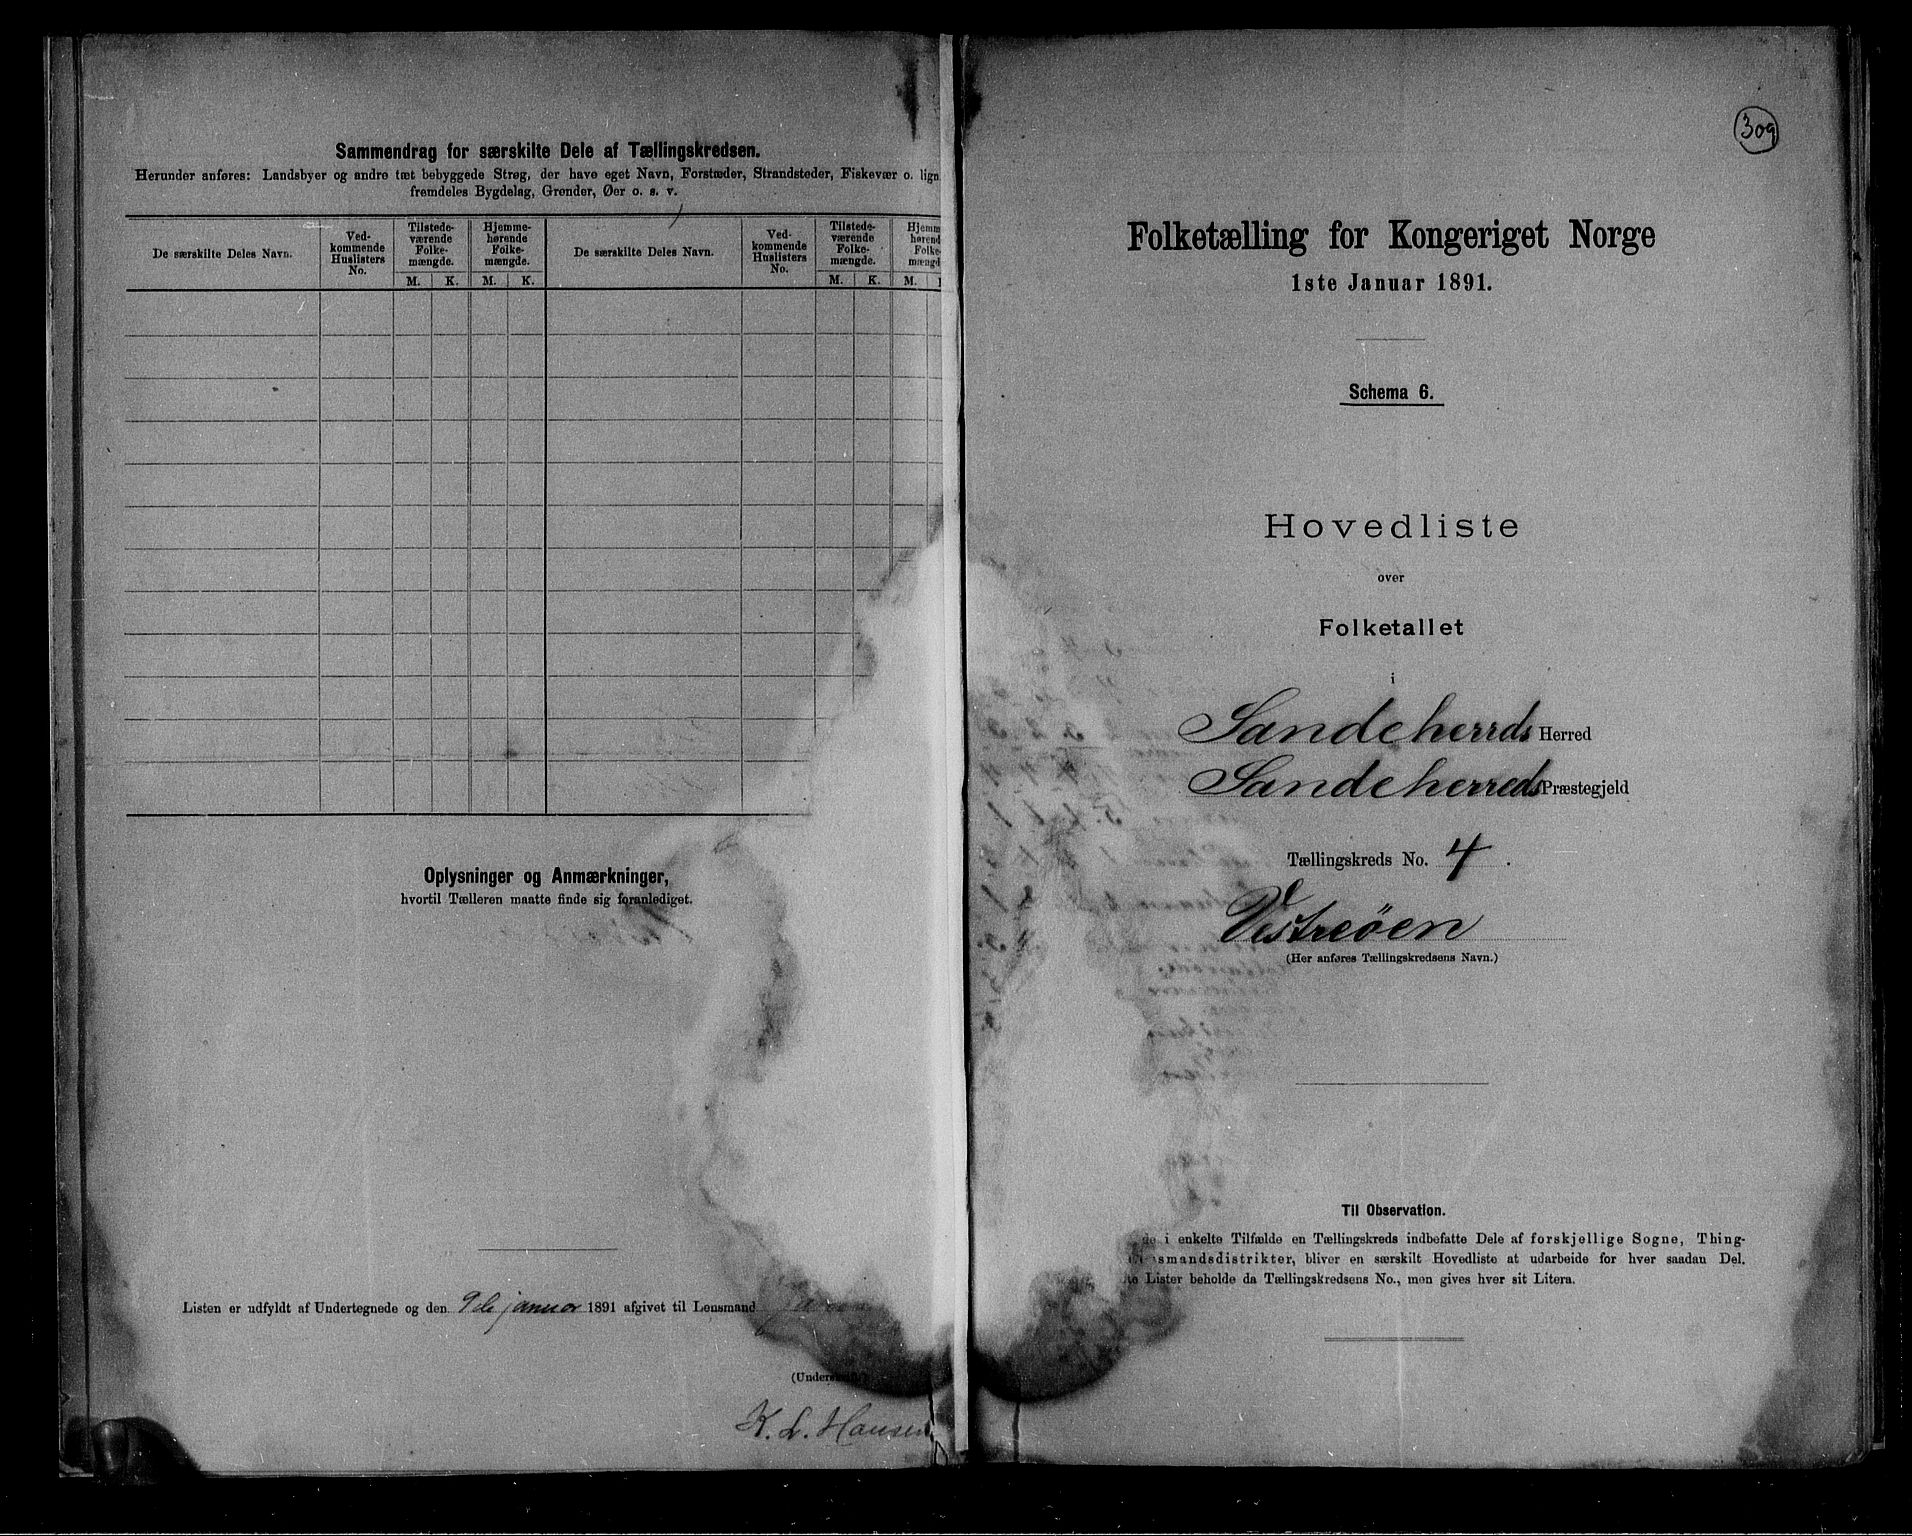 Sammendrag for særskilte Dele af Tællingskredsen.
Herunder anføres: Landsbyer og andre tæt bebyggede Strøg, der have eget Navn, Forstæder, Strandsteder, Fiskevær o. lign
fremdeles Bygdelag, Grender, Øer o. s. v.
De særskilte Deles Navn.
Ved-
kommende
Huslisters
No.
Tilstede-
værende
Folke-
mængde.
Hjemme-
hørende
Folke-
mængde.
De særskilte Deles Navn.
Ved-
kommende
Huslisters
No.
Tilstede-
værende
Folke-
mængde.
Hjemm
hørend
Folke
mængd
M. K. M. K. M. K. M.
Oplysninger og Anmærkninger,
hvortil Tælleren maatte finde sig foranlediget.
Listen er udfyldt af Undertegnede og den 9de januar 1891 afgivet til Lensmand
(Unders
K. L. Hansen
309
Folketælling for Kongeriget Norge
1ste Januar 1891.
Schema 6.
Hovedliste
over
Folketallet
i
Sandeherrds Herred
Sandeherreds Præstegjeld
Tællingskreds No. 4.
Vestreøen
(Her anføres Tællingskredsens Navn.)
Til Observation.
de i enkelte Tilfælde en Tællingskreds indbefatte Dele af forskjellige Sogne, Thing-
smandsdistrikter, bliver en særskilt Hovedliste at udarbeide for hver saadan Del.
Lister beholde da Tællingskredsens No., men gives hver sit Litera.